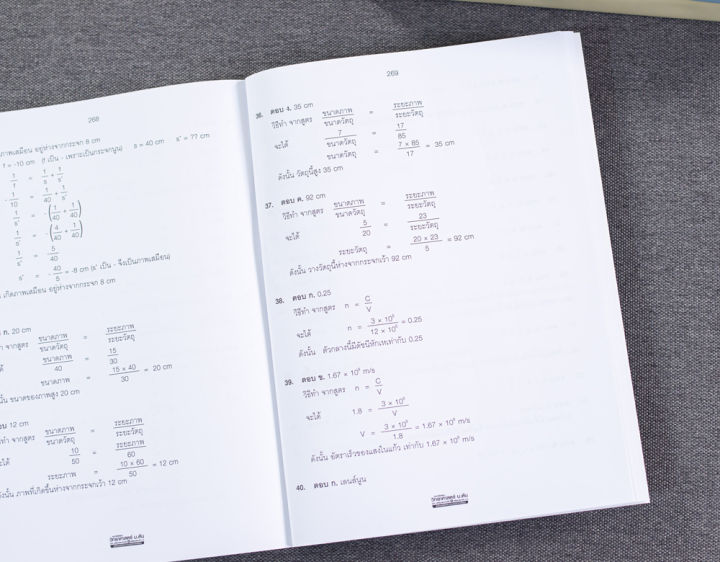 268
ภาพเสมือน อยู่ห่างจากกระจก 8 cm
f = -10 cm (f เป็น - เพราะเป็นกระจกนูน) s = 40 cm s' = ?? cm
1/f = 1/s + 1/s'
- 1/10 = 1/40 + 1/s'
1/s' = - (1/40 + 1/10)
1/s' = - (4/40 + 1/40)
1/s' = - 5/40
s' = - 40/5 = -8 cm (s' เป็น - จึงเป็นภาพเสมือน)
เกิดภาพเสมือน อยู่ห่างจากกระจก 8 cm
ก. 20 cm
จากสูตร ขนาดภาพ/ขนาดวัตถุ = ระยะภาพ/ระยะวัตถุ
ขนาดภาพ/40 = 15/30
ขนาดภาพ = 15 x 40/30 = 20 cm
ขนาดของภาพสูง 20 cm
12 cm
จากสูตร ขนาดภาพ/ขนาดวัตถุ = ระยะภาพ/ระยะวัตถุ
10/50 = ระยะภาพ/60
ระยะภาพ = 10 x 60/50 = 12 cm
ภาพที่เกิดขึ้นห่างจากกระจกเว้า 12 cm
วิทยาศาสตร์ ม.ต้น
269
36. ตอบ ง. 35 cm
วิธีทำ จากสูตร ขนาดภาพ/ขนาดวัตถุ = ระยะภาพ/ระยะวัตถุ
จะได้ 7/ขนาดวัตถุ = 17/85
ขนาดวัตถุ = 7 x 85/17 = 35 cm
ดังนั้น วัตถุนี้สูง 35 cm
37. ตอบ ค. 92 cm
วิธีทำ จากสูตร ขนาดภาพ/ขนาดวัตถุ = ระยะภาพ/ระยะวัตถุ
จะได้ 5/20 = 23/ระยะวัตถุ
ระยะวัตถุ = 20 x 23/5 = 92 cm
ดังนั้น วางวัตถุนี้ห่างจากกระจกเว้า 92 cm
38. ตอบ ก. 0.25
วิธีทำ จากสูตร n = C/V
จะได้ n = 3 x 10⁸/12 x 10⁸ = 0.25
ดังนั้น ตัวกลางนี้มีดัชนีหักเหเท่ากับ 0.25
39. ตอบ ข. 1.67 x 10⁸ m/s
วิธีทำ จากสูตร n = C/V
จะได้ 1.8 = 3 x 10⁸/V
V = 3 x 10⁸/1.8 = 1.67 x 10⁸ m/s
ดังนั้น อัตราเร็วของแสงในแก้ว เท่ากับ 1.67 x 10⁸ m/s
40. ตอบ ก. เลนส์นูน
วิทยาศาสตร์ ม.ต้น